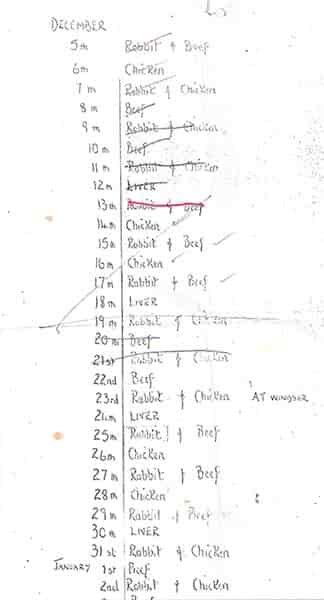 DECEMBER
5th Rabbit & Beef
6th Chicken
7th Rabbit & Chicken
8th Beef
9th Rabbit & Chicken
10th Beef
11th Rabbit & Chicken
12th LIVER
13th Rabbit & Beef
14th Chicken
15th Rabbit & Beef
16th Chicken
17th Rabbit & Beef
18th LIVER
19th Rabbit & Chicken
20th Beef
21st Rabbit & Chicken
22nd Beef
23rd Rabbit & Chicken AT WINDSOR
24th LIVER
25th Rabbit & Beef
26th Chicken
27th Rabbit & Beef
28th Chicken
29th Rabbit & Beef
30th LIVER
31st Rabbit & Chicken
JANUARY 1st Beef
2nd Rabbit & Chicken